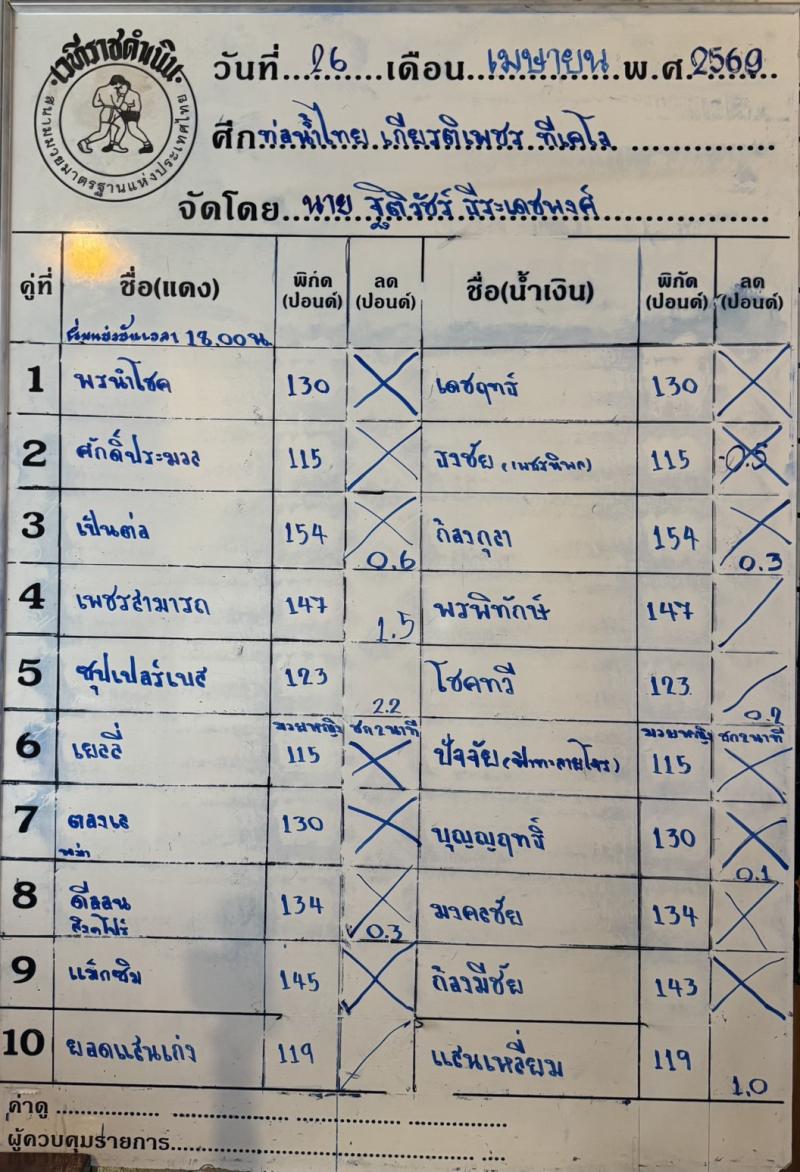 เวทีราชดำเนิน
สนามมวยมาตรฐานแห่งประเทศไทย
วันที่ 26 เดือน เมษายน พ.ศ. 2569
ศึก ท่อน้ำไทย เกียรติเพชร ทีเคโอ
จัดโดย นาย ฐิติวัชร์ ธีระเดชพงศ์
คู่ที่ ชื่อ(แดง) พิกัด (ปอนด์) ลด (ปอนด์) ชื่อ(น้ำเงิน) พิกัด (ปอนด์) ลด (ปอนด์)
18.00 น
1 พรนำโชค 130 เดชฤทธิ์ 130
2 ศักดิ์ประมวล 115 ธงชัย 115 -0.5
3 เป็นต่อ 154 0.6 ก้องกุลา 154 0.3
4 เพชรสามารถ 147 1.5 พรพิทักษ์ 147
5 ซุปเปอร์เบส 123 2.2 โชคทวี 123 0.2
มวยหญิง ชก 2 นาที มวยหญิง ชก 2 นาที
6 เยลลี่ 115 ปัจจัย 115
7 ตลาเล 130 บุญญฤทธิ์ 130 0.1
พม่า
8 ดีลลน 134 0.3 มงคลชัย 134
สิงคโปร์
9 แม็กซิม 145 ก้องมีชัย 143
10 ยอดแสนเก่ง 119 แสนเหลี่ยม 119 1.0
ค่าดู
ผู้ควบคุมรายการ